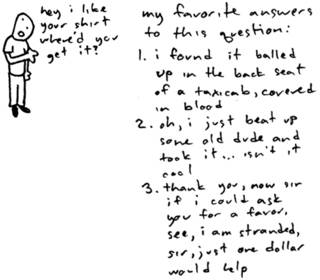 hey i like
your shirt
where'd you
get it?
my favorite answers
to this question:
1. i found it balled
up in the back seat
of a taxicab, covered
in blood
2. oh, i just beat up
some old dude and
took it... isn't it
cool
3. thank you, now sir
if i could ask
you for a favor,
see, i am stranded,
sir, just one dollar
would help